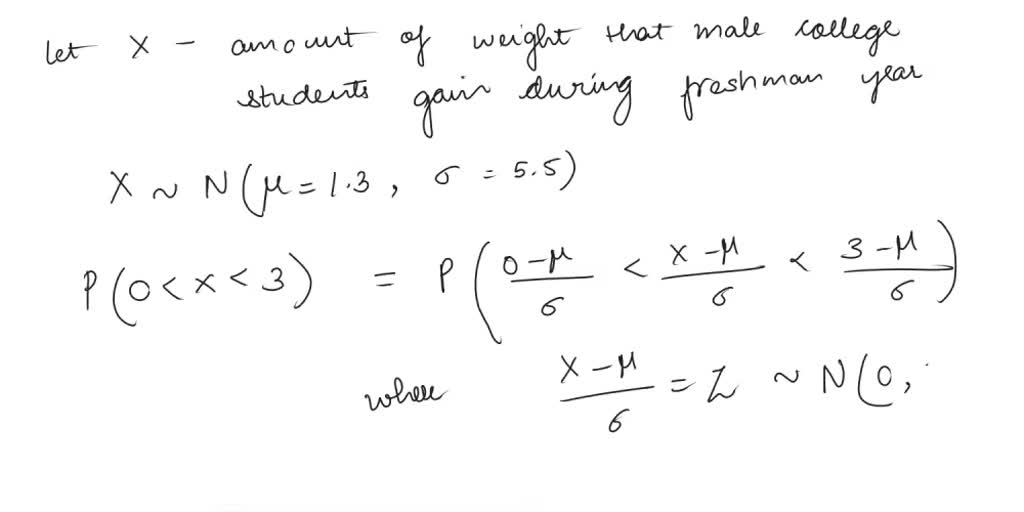 let X - amount of weight that male college
students gain during freshman year
X ~ N(μ = 1.3, σ = 5.5)
P(0 < x < 3) = P((0-μ)/σ < (x-μ)/σ < (3-μ)/σ)
where (X-μ)/σ = Z ~ N(0,